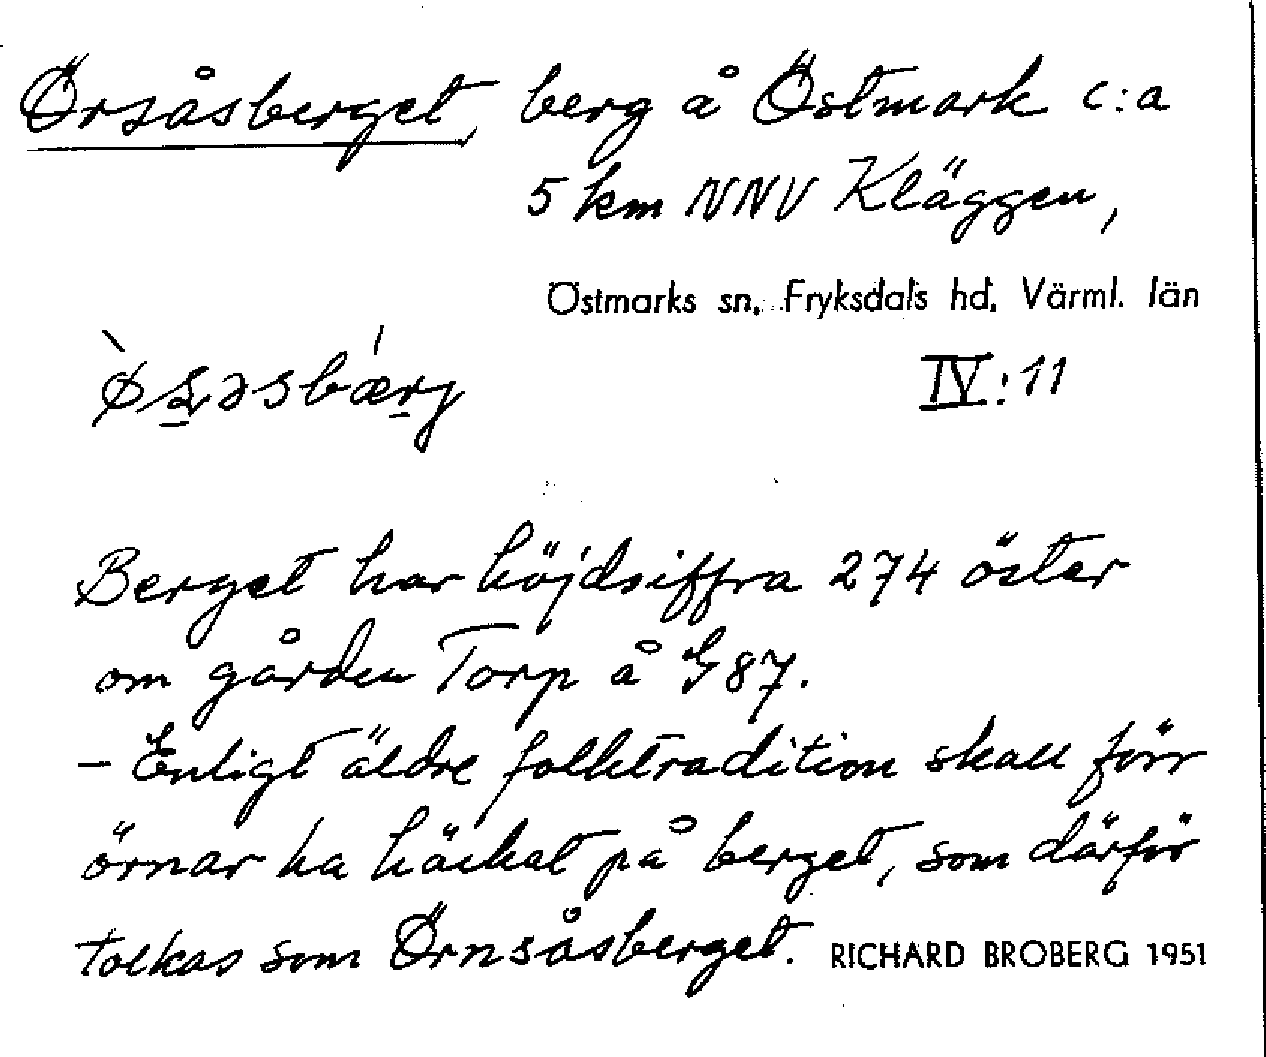 Örsåsberget, berg å Östmark c:a
5 km NNV Kläggen,
Östmarks sn, Fryksdals hd, Värml. län
IV:11
Berget har höjdsiffra 274 öster
om gården Torp å G 87.
- Enligt äldre folktradition skall förr
örnar ha häckat på berget, som därför
tolkas som Örnsåsberget. RICHARD BROBERG 1951